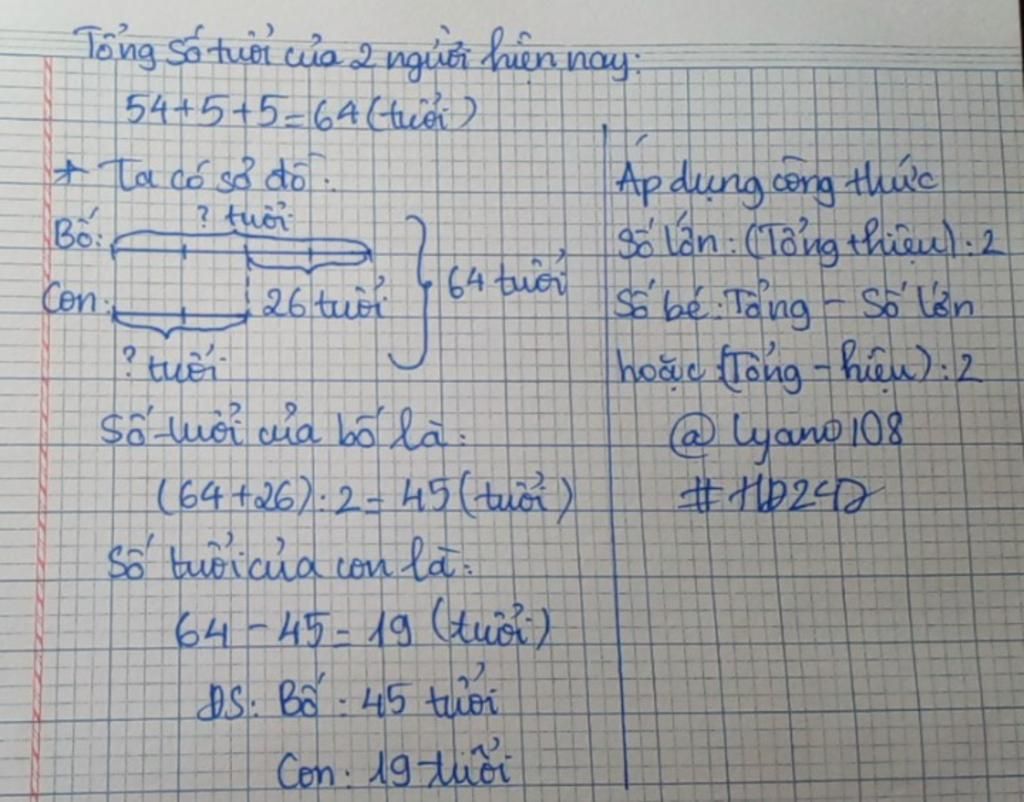 Tổng số tuổi của 2 người hiện nay:
54+5+5=64(tuổi)
* Ta có sơ đồ:
? tuổi
Bố:
Con:
26 tuổi
64 tuổi
? tuổi
Số tuổi của bố là:
(64+26):2=45(tuổi)
Số tuổi của con là:
64-45=19 (tuổi)
ĐS: Bố: 45 tuổi
Con: 19 tuổi
Áp dụng công thức
Số lớn: (Tổng+hiệu):2
Số bé: Tổng - Số lớn
hoặc (Tổng-hiệu):2
@ lyano108